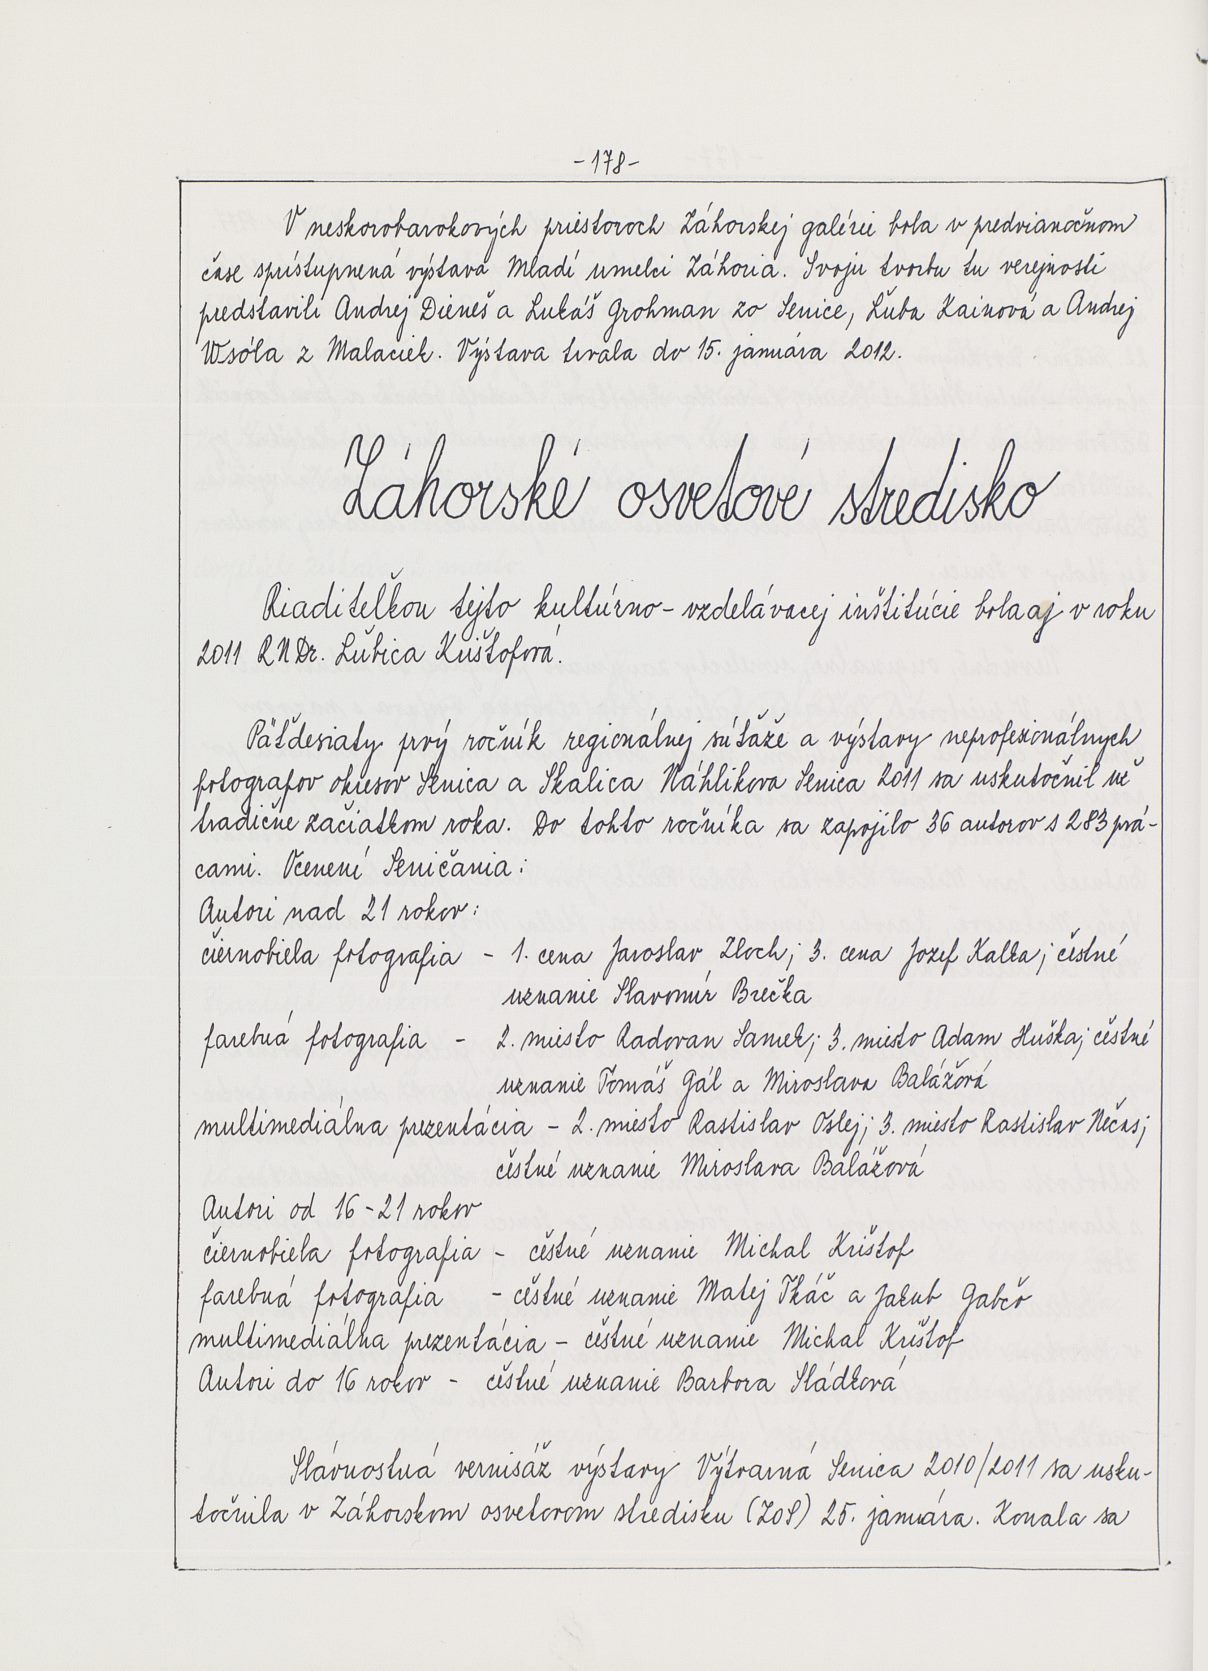 -178-
V neskorobarokových priestoroch Záhorskej galérie bola v predvianočnom
čase sprístupnená výstava Mladí umelci Záhoria. Svoju tvorbu tu verejnosti
predstavili Andrej Dieneš a Lukáš Grohman zo Senice, Ľuba Kainová a Andrej
Wsóla z Malaciek. Výstava trvala do 15. januára 2012.
Záhorské osvetové stredisko
Riaditeľkou tejto kultúrno-vzdelávacej inštitúcie bola aj v roku
2011 RNDr. Ľubica Krištofová.
Päťdesiaty prvý ročník regionálnej súťaže a výstavy neprofesionálnych
fotografov okresov Senica a Skalica Náhlikova Senica 2011 sa uskutočnil už
tradične začiatkom roka. Do tohto ročníka sa zapojilo 36 autorov s 283 prá-
cami. Ocenení Seničania:
Autori nad 21 rokov:
čiernobiela fotografia - 1. cena Jaroslav Zloch; 3. cena Jozef Kalka; čestné
uznanie Slavomír Brečka
farebná fotografia - 2. miesto Radovan Samek; 3. miesto Adam Huška; čestné
uznanie Tomáš Gál a Miroslava Balážová
multimediálna prezentácia - 2. miesto Rastislav Oslej; 3. miesto Rastislav Nečas;
čestné uznanie Miroslava Balážová
Autori od 16-21 rokov
čiernobiela fotografia - čestné uznanie Michal Krištof
farebná fotografia - čestné uznanie Matej Tkáč a Jakub Gabčo
multimediálna prezentácia - čestné uznanie Michal Krištof
Autori do 16 rokov - čestné uznanie Barbora Sládková
Slávnostná vernisáž výstavy Výtvarná Senica 2010/2011 sa usku-
točnila v Záhorskom osvetovom stredisku (ZOS) 25. januára. Konala sa